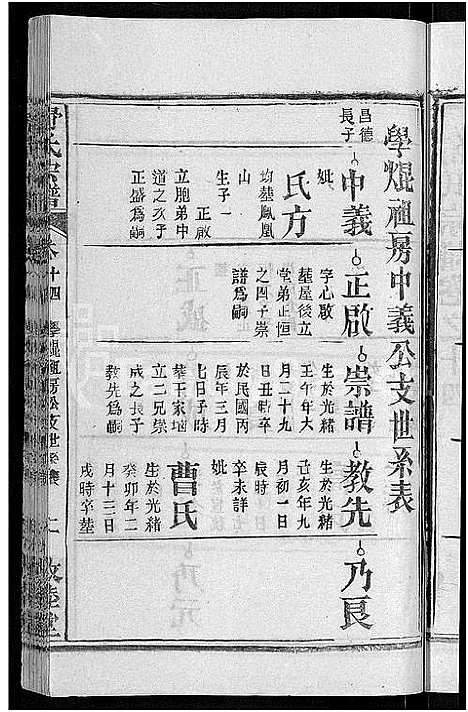 學焜祖房中義公支世系表
昌德
長子
中義
妣
氏方
均塟鳳凰
山
生子一
正啟
立胞弟中
道之次子
正盛爲嗣
正啟
字心啟
塟屋後立
堂弟正恒
之四子崇
譜爲嗣
崇譜
生於光緒
壬午年大
月二十九
日丑時卒
於民國丙
辰年三月
七日子時
塟干家塆
立二兄崇
成之長子
教先爲嗣
教先
生於光緒
己亥年九
月初一日
辰時
卒未詳
妣
曹氏
生於光緒
癸卯年二
月十三日
戌時卒塟
乃良
氏宗譜
卷十四
學焜祖房公支世系表
敦睦堂